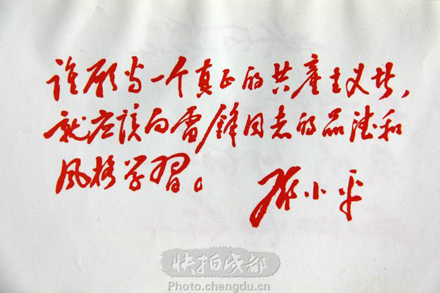 谁愿当一个真正的共产主义者，
就应该向雷锋同志的品德和
风格学习。
邓小平
快拍成都
Photo.chengdu.cn